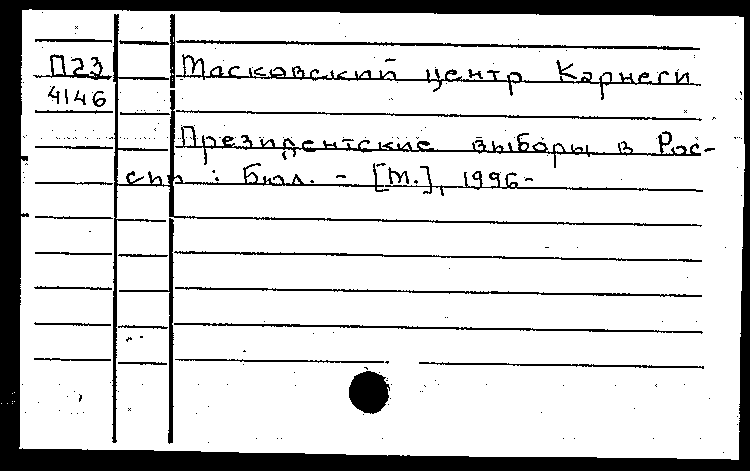 П23
4146
Московский центр Карнеги
Президентские выборы в Рос-
сии : Бюл. - [М.], 1996-